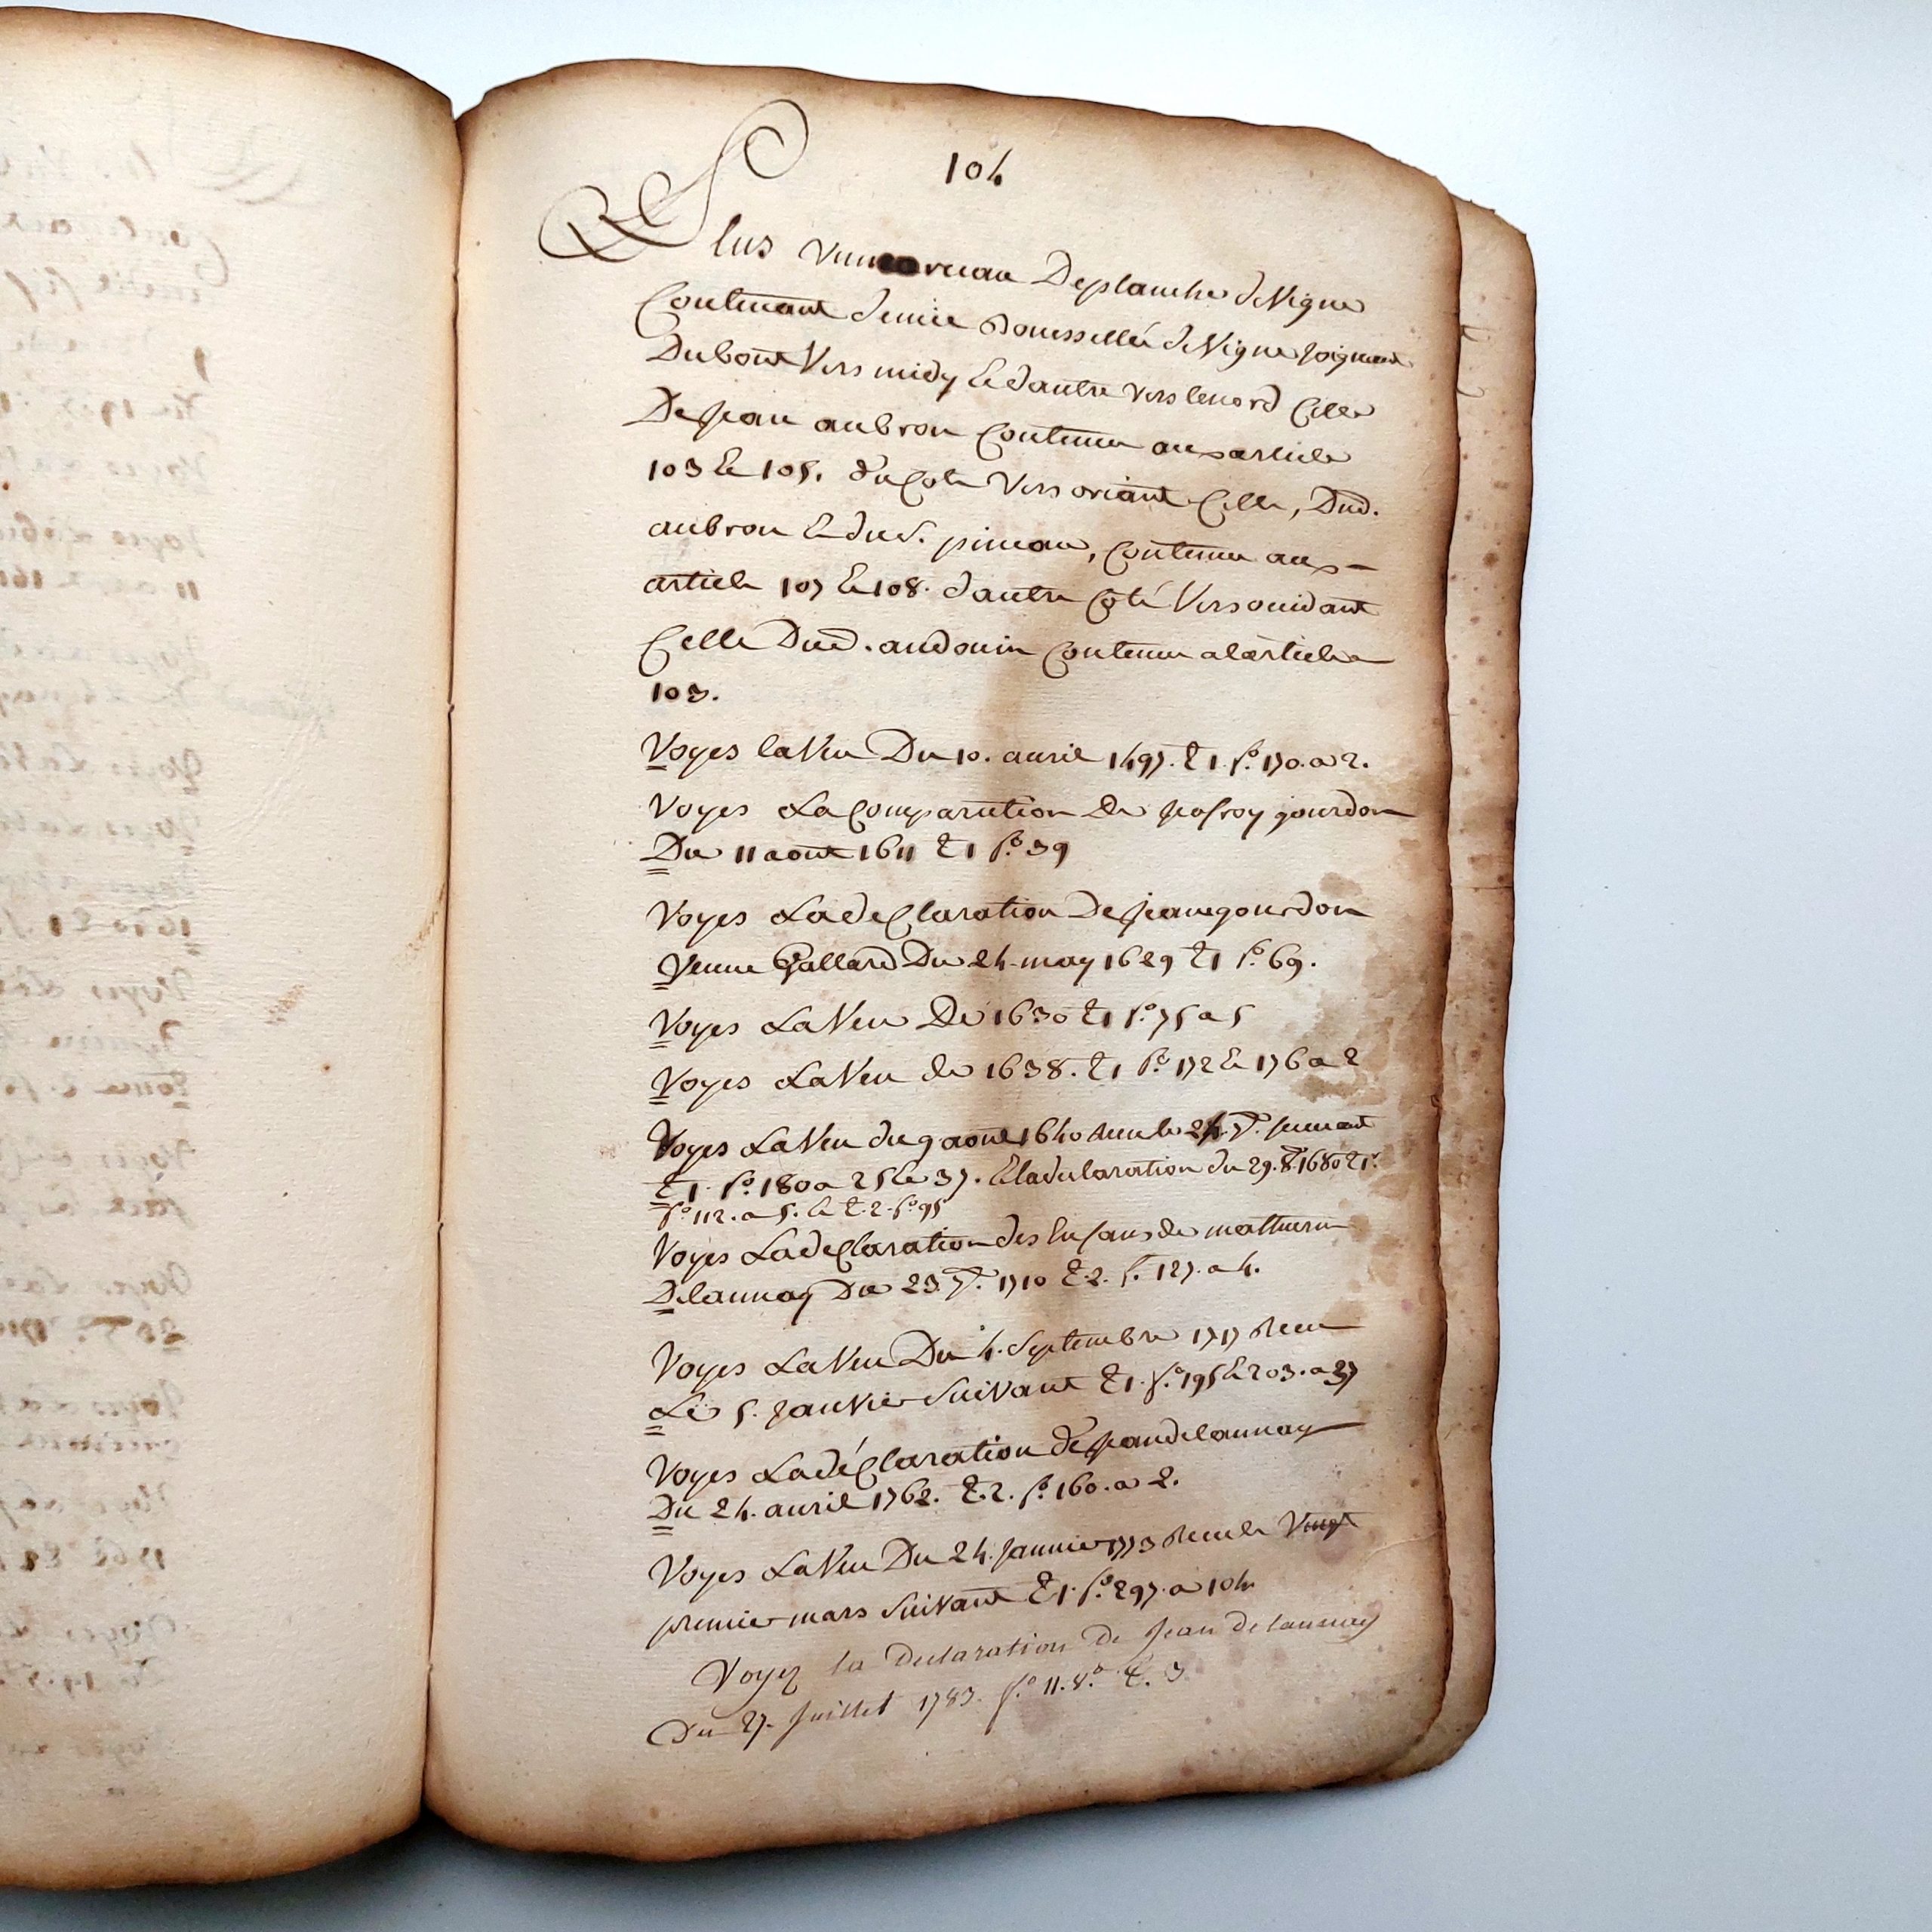 104
Plus un morceau De planche de Vigne
Contenant demie Boisselée de Vigne joignant
Du bout Vers midy Et dautre vers le nord Celle
De Jean aubron Contenue aux article
103 Et 105. du Coté Vers oriant Celle, Dud.
aubron Et du S. pineau, Contenue aux
article 107 Et 108. dautre Coté Vers ouidant
Celle Dud. audouin Contenue a larticle
103.
Voyes la Veu Du 10. auril 1497. t1. f.º 170. a 2.
Voyes La Comparution De jofroy gourdon
Du 11 aout 1611 t1 f.º 39
Voyes La deClaration De Jeanne gourdon
Veuue Gallard Du 24 may 1629 t1 f.º 69.
Voyes La Veu De 1630 t1 f.º 75 a 5
Voyes La Veu de 1638. t1 f.º 172 Et 176 a 2
Voyes La Veu du 9 aout 1640 Receu le 24. 7.e suiuant
t1. f.º 180 a 25 Et 37. Et la declaration du 29. 8.e 1680 t1.
f.º 112. a 5. Et t.2. f.º 95
Voyes La deClaration des Enfans de mathurin
Delaunay Du 23. 7.e 1710 t.2. f. 127. a 4.
Voyes La Veu Du 4. Septembre 1717 Receu
Le 5. Januier Suivant t1. f.º 195 Et 203. a 37
Voyes La déClaration de Jean delaunay
Du 24. auril 1762. t.2. f.º 160. a 2.
Voyes La Veu Du 24. Januier 1773 Receu le Vingt
premier mars Suivant t1. f.º 297. a 104
Voyez la Declaration de Jean delaunay
Du 27. Juillet 1783. f.º 11. v.º t. 3